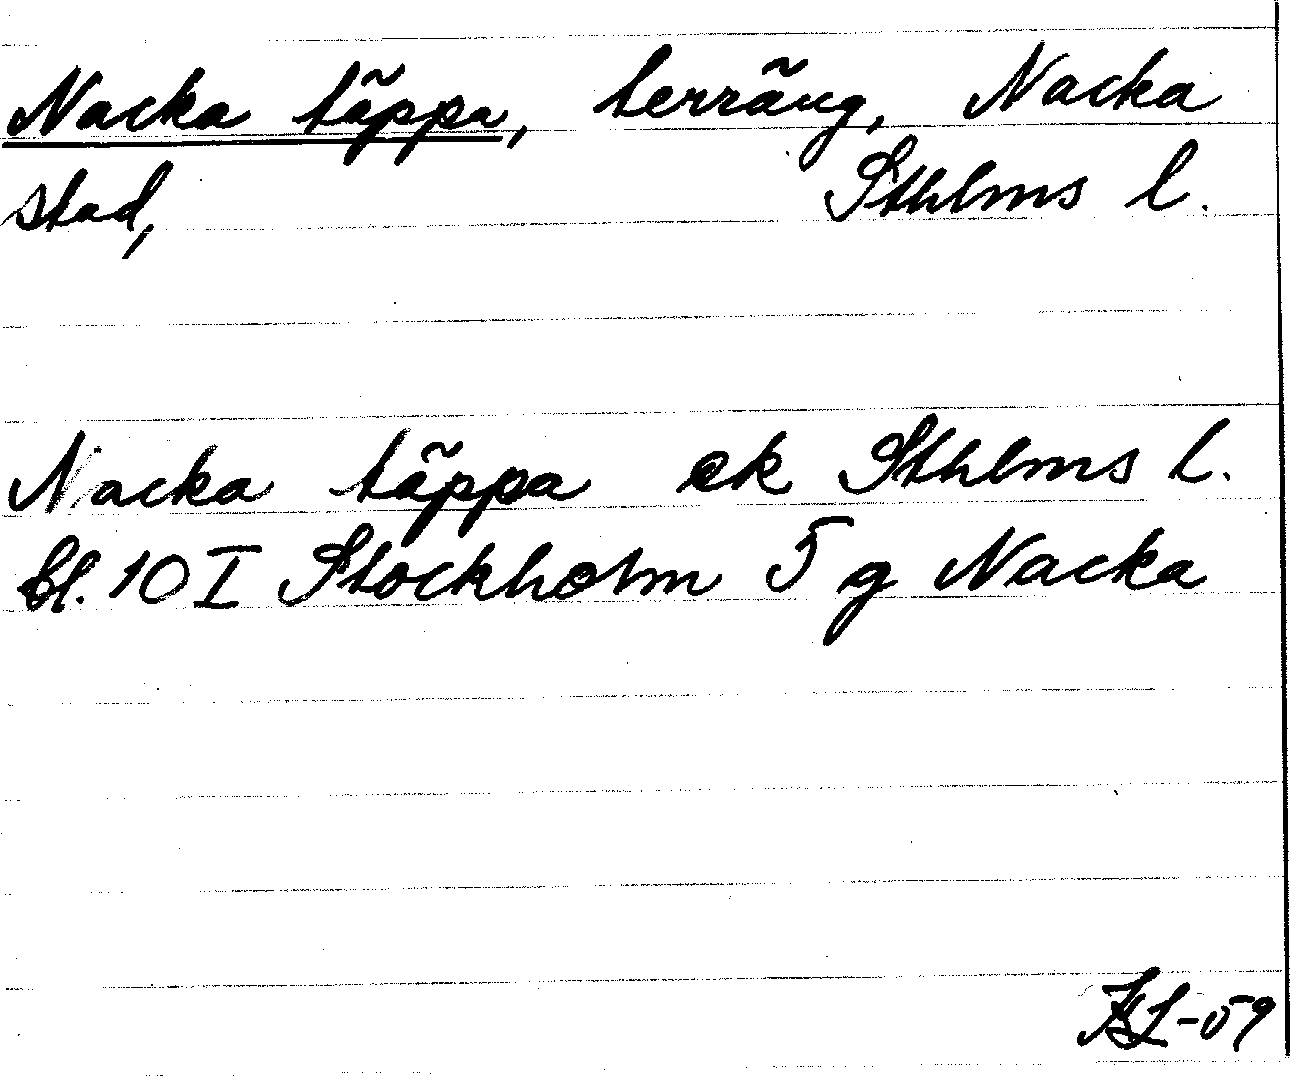 Nacka täppa, terräng, Nacka
stad, Sthlms l.
Nacka täppa ek Sthlms l.
bl. 10 I Stockholm 5 g Nacka
KL-59